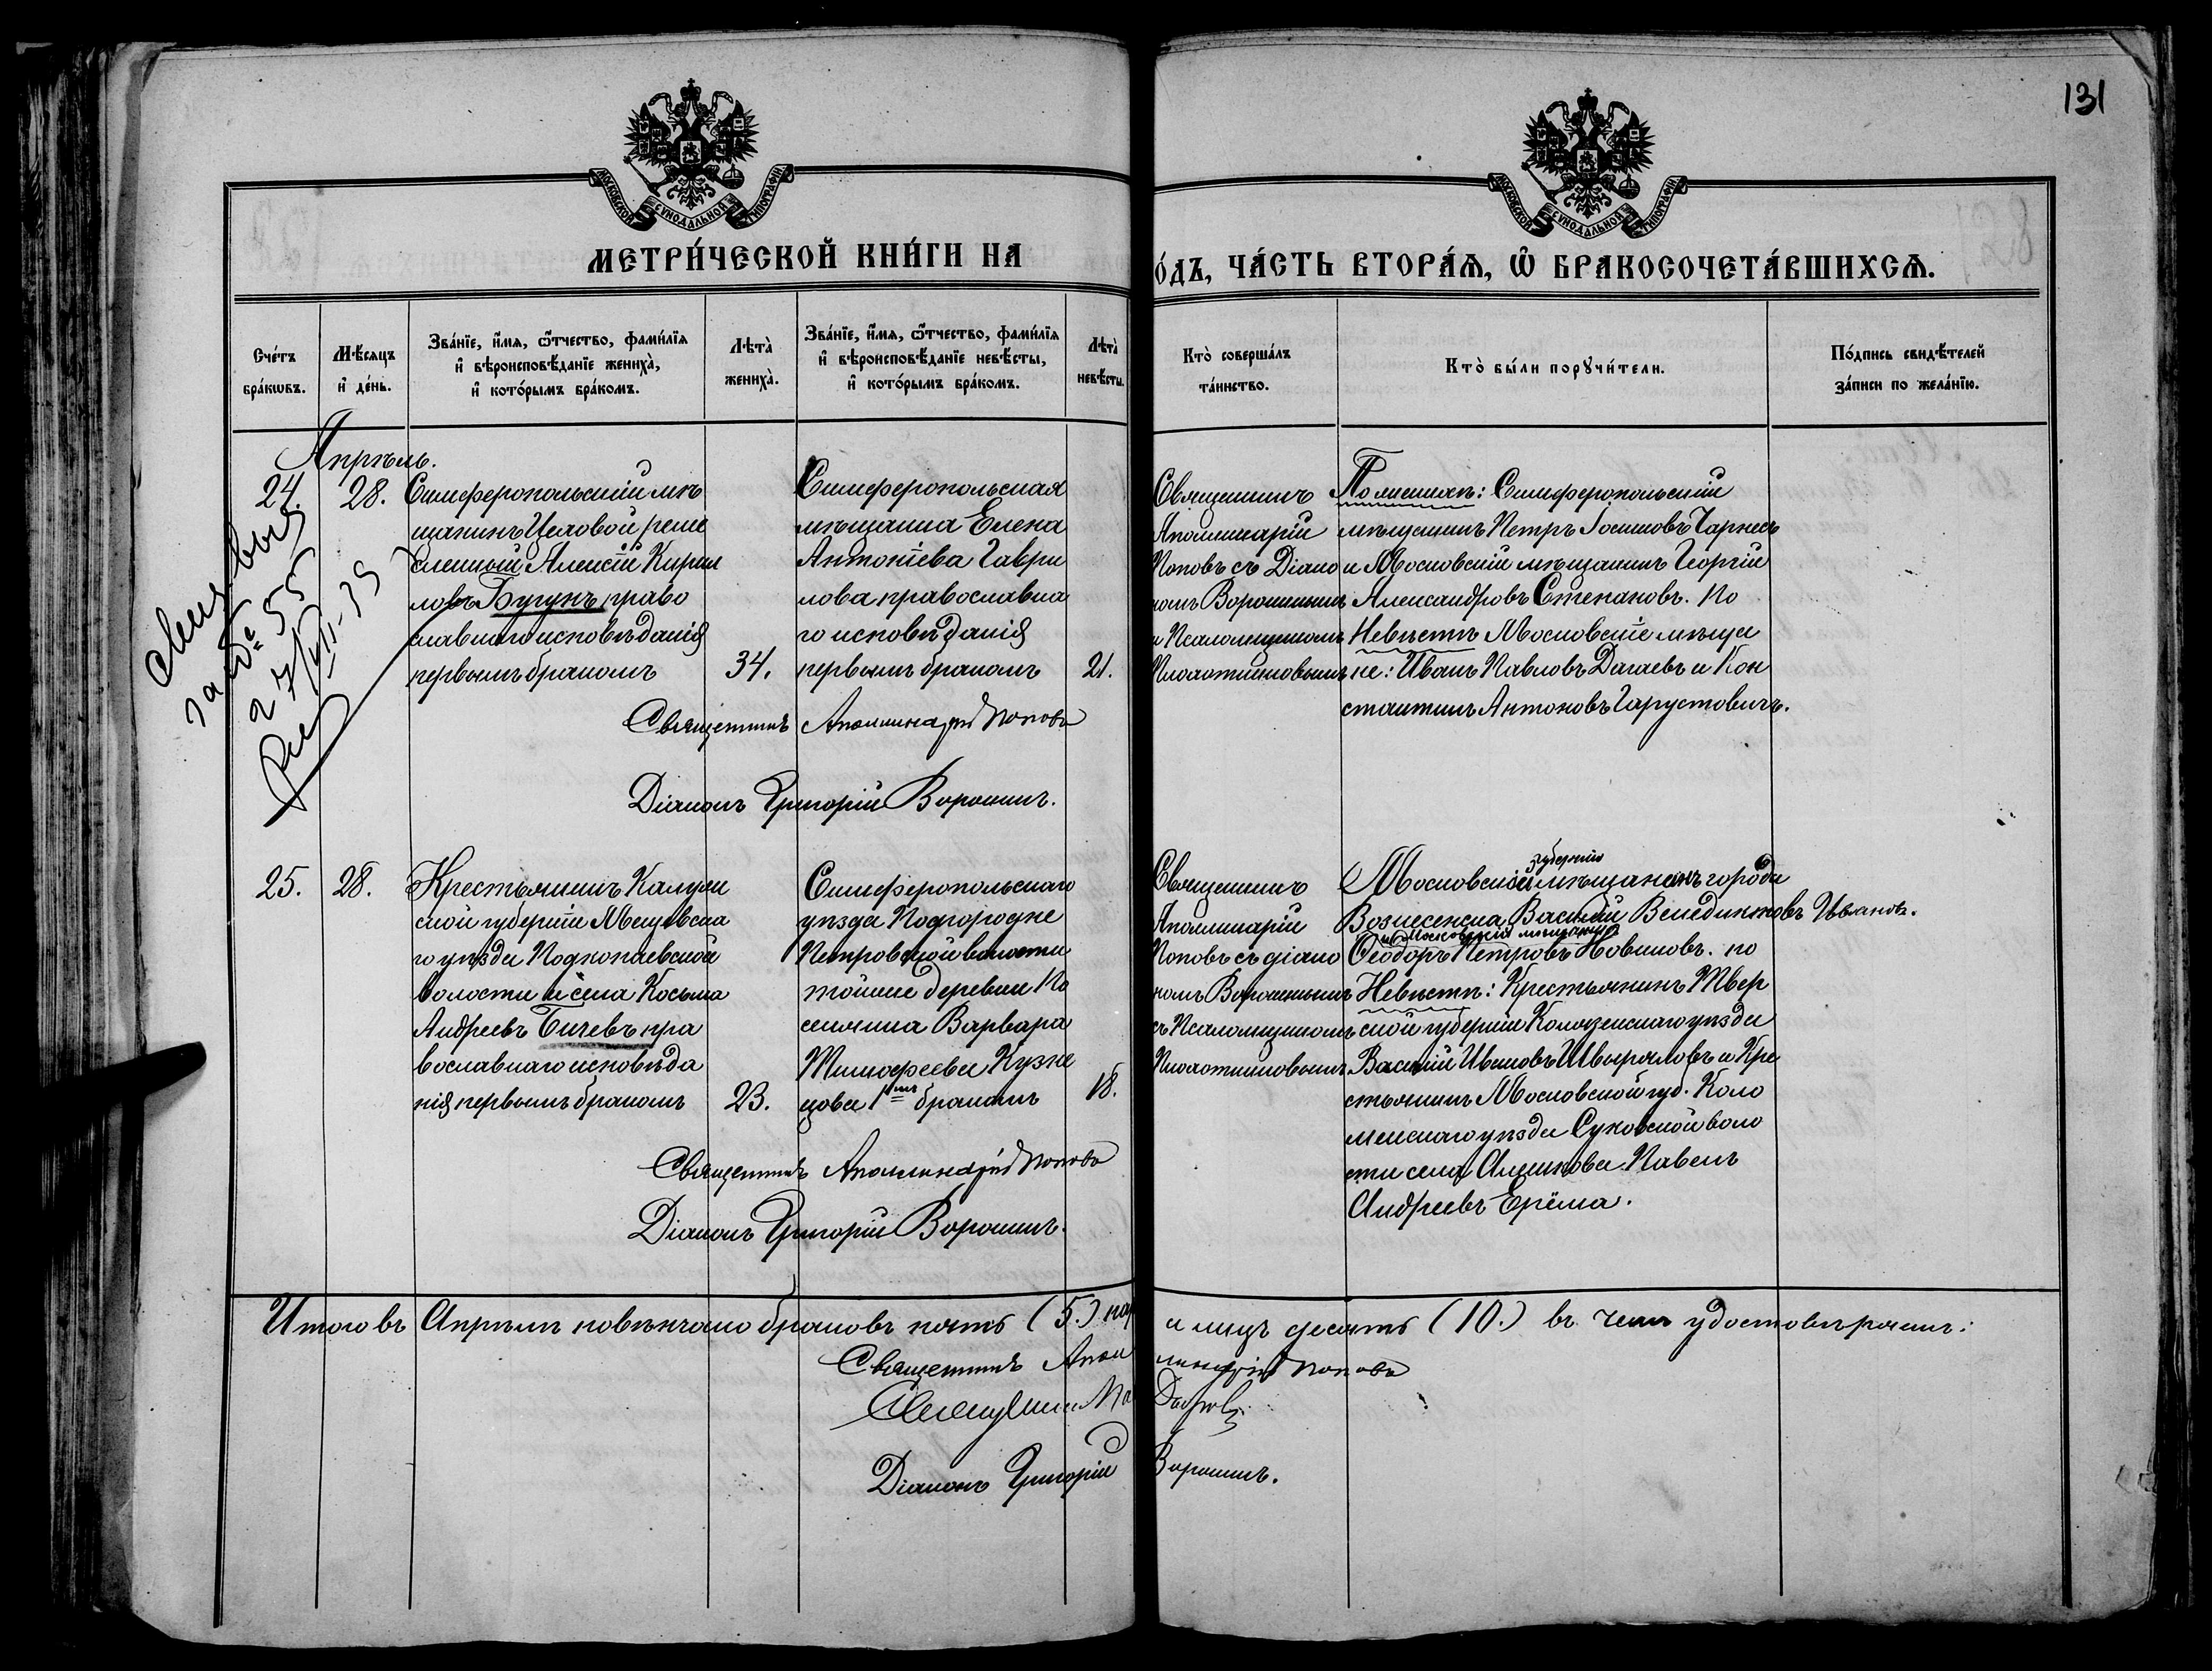 131
МОСКОВСКОЙ СѴНОДАЛЬНОЙ ТИПОГРАФІИ
МОСКОВСКОЙ СѴНОДАЛЬНОЙ ТИПОГРАФІИ
МЕТРИ́ЧЕСКОЙ КНИ́ГИ НА
О́ДЪ, ЧА́СТЬ ВТОРА́Ѧ, Ѿ БРАКОСОЧЕТА́ВШИХСѦ.
Сче́тъ бра́кѡвъ.
Мѣ́сяцъ и҆ де́нь.
Зва́нїе, и҆́мѧ, ѻ҆́тчество, фами́лїѧ и҆ вѣроисповѣ́данїе жениха̀, и҆ кото́рымъ бра́комъ.
Лѣта̀ жениха̀.
Зва́нїе, и҆́мѧ, ѻ҆́тчество, фами́лїѧ и҆ вѣроисповѣ́данїе невѣ́сты, и҆ кото́рымъ бра́комъ.
Лѣта̀ невѣ́сты.
Кто̀ соверша́лъ та́инство.
Кто̀ бы́ли порꙋчи́тели.
По́дпись свидѣ́телей за́писи по жела́нїю.
Апрѣль.
24.
28.
Симферопольскій мѣ
щанинъ Цеховой реме
сленный Алексій Кирил
ловъ Бугунъ право
славнаго исповѣданія
первымъ бракомъ
34.
Симферопольская
мѣщанка Елена
Антоніева Гаври
лова православна
го исповѣданія
первымъ бракомъ
21.
Священникъ
Аполлинарій
Поповъ съ Діако
номъ Ворошинымъ
и Псаломщикомъ
По женихѣ: Симферопольскій
мѣщанинъ Петръ Іосифовъ
и Московскій мѣщанинъ Георгій
Александровъ Степановъ. По
Невѣстѣ Московскіе мѣща
не: Иванъ Павловъ Дагаевъ и Кон
стантинъ Антоновъ Гарустовичъ.
Священникъ Аполлинарій Поповъ
Діаконъ Григорій Ворошинъ.
за № 55
25.
28.
Крестьянинъ Калуж
ской губерніи Мещовска
го уѣзда Подкопаевской
волости и села Косьма
Андреевъ Бичевъ пра
вославнаго исповѣда
нія первымъ бракомъ
23.
Симферопольскаго
уѣзда Подгородне
Петровской волости
тойже деревни По
селянка Варвара
Тимофеева Кузне
цова 1мъ бракомъ
18.
Священникъ
Аполлинарій
Поповъ съ діако
номъ Ворошинымъ
съ Псаломщикомъ
губерніи
Московской мѣщанинъ города
Вознесенска Василій Венедиктовъ Ивановъ.
и Московскій мѣщанинъ
Ѳеодоръ Петровъ Новиковъ. по
Невѣстѣ: Крестьянинъ Твер
ской губерніи Колязинскаго уѣзда
Василій Ивановъ Шевыряловъ и Кре
стьянинъ Московской губ. Коло
менскаго уѣзда Суковской воло
сти села Алешкова Павелъ
Андреевъ Ерёма.
Священникъ Аполлинарій Поповъ
Діаконъ Григорій Ворошинъ.
Итого въ Апрѣлѣ повѣнчано браковъ пять (5.) а лицъ десять (10.) въ чемъ удостовѣряемъ:
Священникъ Аполлинарій Поповъ
Діаконъ Григорій Ворошинъ.